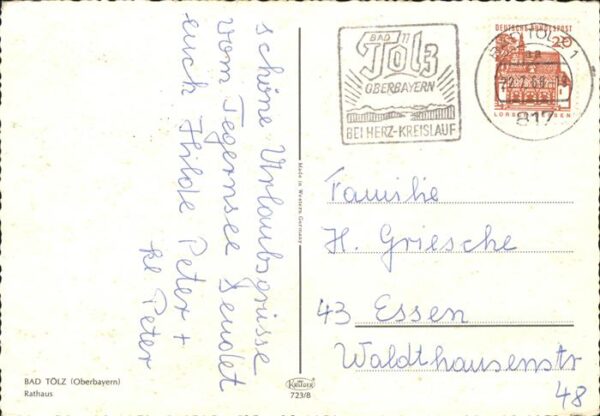 schöne Urlaubsgrüsse
vom Tegernsee sendet
euch Hilde Peter +
kl Peter
BAD TÖLZ (Oberbayern)
Rathaus
Made in Western Germany
KRÜGER
723/8
BAD
Tölz
OBERBAYERN
BEI HERZ-KREISLAUF
DEUTSCHE BUNDESPOST
20
BAD TÖLZ 1
817
Familie
H. Griesche
43 Essen
Waldthausenstr
48